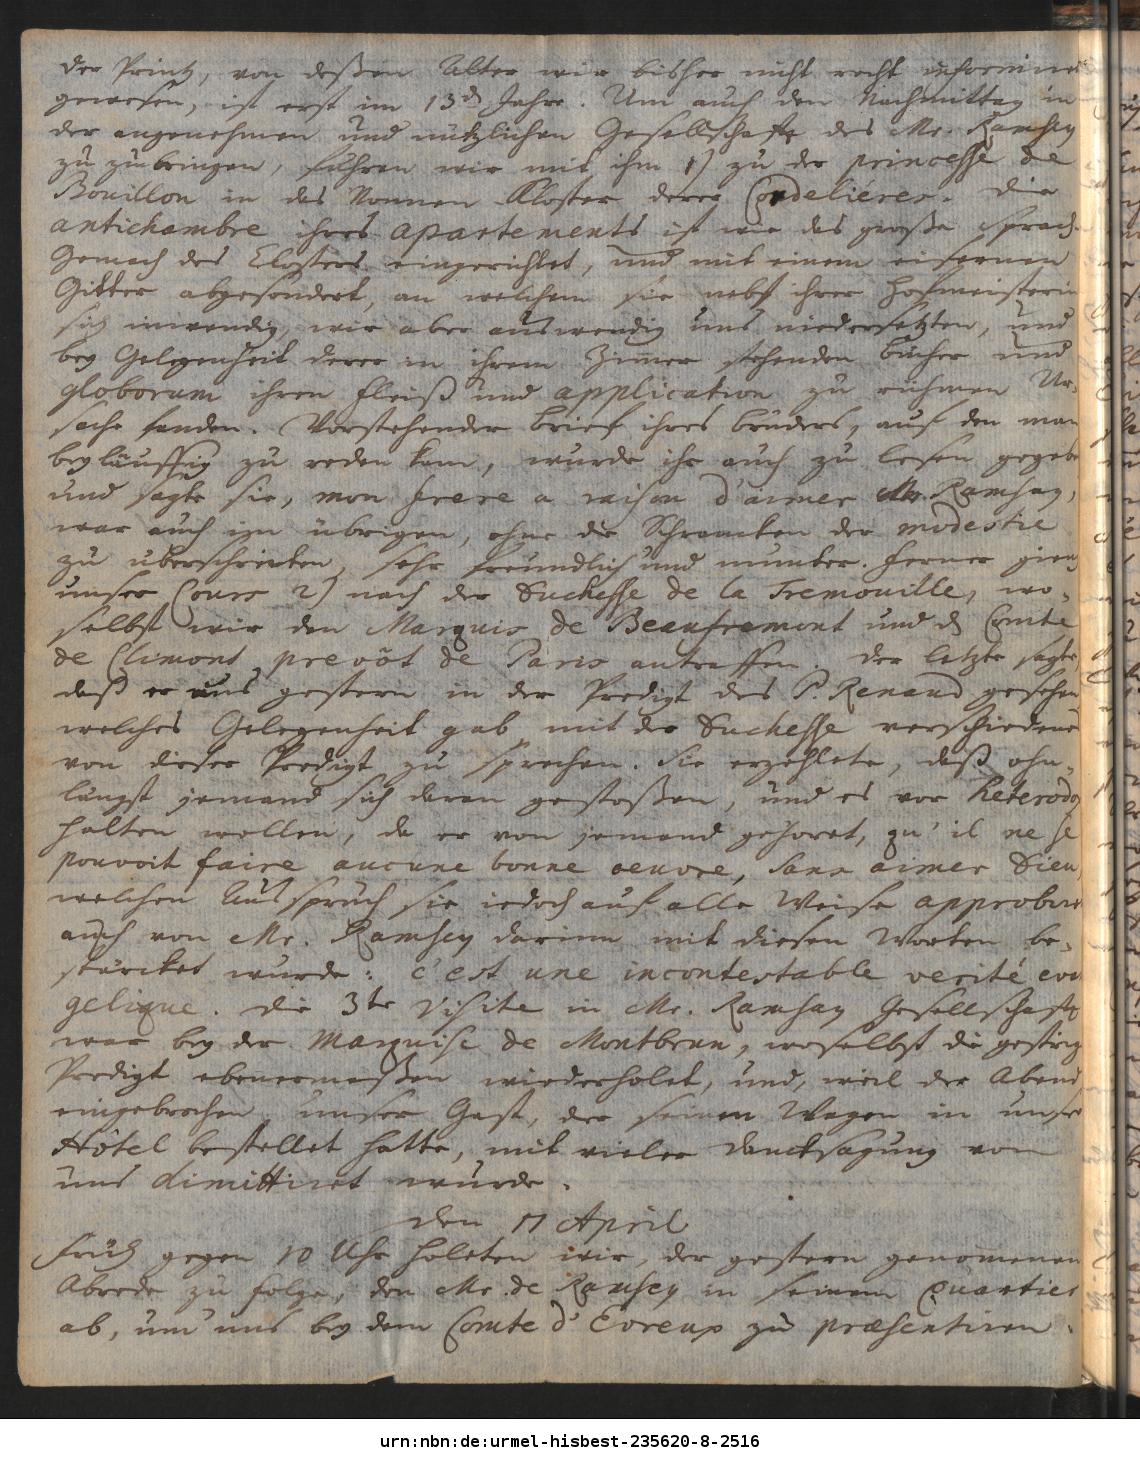 der Printz, von deßen Alter wir bisher nicht recht informiret
gewesen, ist erst im 13den Jahre. Um auch den Nachmittag in
der angenehmen und nützlichen Gesellschafft des Mr. Ramsay
zu zubringen, fuhren wir mit ihm 1) zu der princesse de
Bouillon in das Nonnen Kloster derer Cordeliéres. Die
antichambre ihres apartements ist wie das große Sprach-
Gemach des Closters eingerichtet, und mit einem eisernen
Gitter abgesondert, an welchem sie nebst ihrer Hofmeisterin
sich inwendig, wir aber auswendig uns niedersetzten, und
bey Gelegenheit derer in ihrem Zimmer stehenden bücher und
globorum ihren fleiß und application zu rühmen Ur-
sache fanden. Vorstehender brief ihres bruders, auf den man
beyläuffig zu reden kam, wurde ihr auch zu lesen gegeben
und sagte sie, mon frere a raison d'aimer Mr. Ramsay,
war auch im übrigen, ohne die Schrancken der modestie
zu überschreiten, sehr freundlich und munter. Ferner gieng
unser Cours 2) nach der Duchesse de la Tremouille, wo-
selbst wir den Marquis de Beaufremont und den Comte
de Climont, prevôt de Paris antraffen. Der letzte sagte,
daß er uns gestern in der Predigt des P. Renaud gesehen
welches Gelegenheit gab, mit der Duchesse verschiedenes
von dieser Predigt zu sprechen. Sie erzehlete, daß ohn-
längst jemand sich daran gestoßen, und es vor heterodox
halten wollen, da er von jemand gehöret, qu'il ne se
pouvoit faire aucune bonne oeuvre, sans aimer Dieu,
welchen Ausspruch sie iedoch auf alle Weise approbirte
auch von Mr. Ramsay darinn mit diesen Worten be-
stärcket wurde: c'est une incontestable verité evan
gelique. Die 3te Visite in Mr. Ramsay Gesellschafft
war bey der Marquise de Montbrun, woselbst die gestrige
Predigt ebenermaßen wiederholet, und, weil der Abend
eingebrochen, unser Gast, der seinen Wagen in unser
Hôtel bestellet hatte, mit vieler Dancksagung von
uns dimittiret wurde.
den 17 April
Früh gegen 10 Uhr holeten wir, der gestern genommenen
Abrede zu folge, den Mr. de Ramsay in seinem Quartier
ab, um uns bey dem Comte d'Evreux zu præsentiren.
urn:nbn:de:urmel-hisbest-235620-8-2516